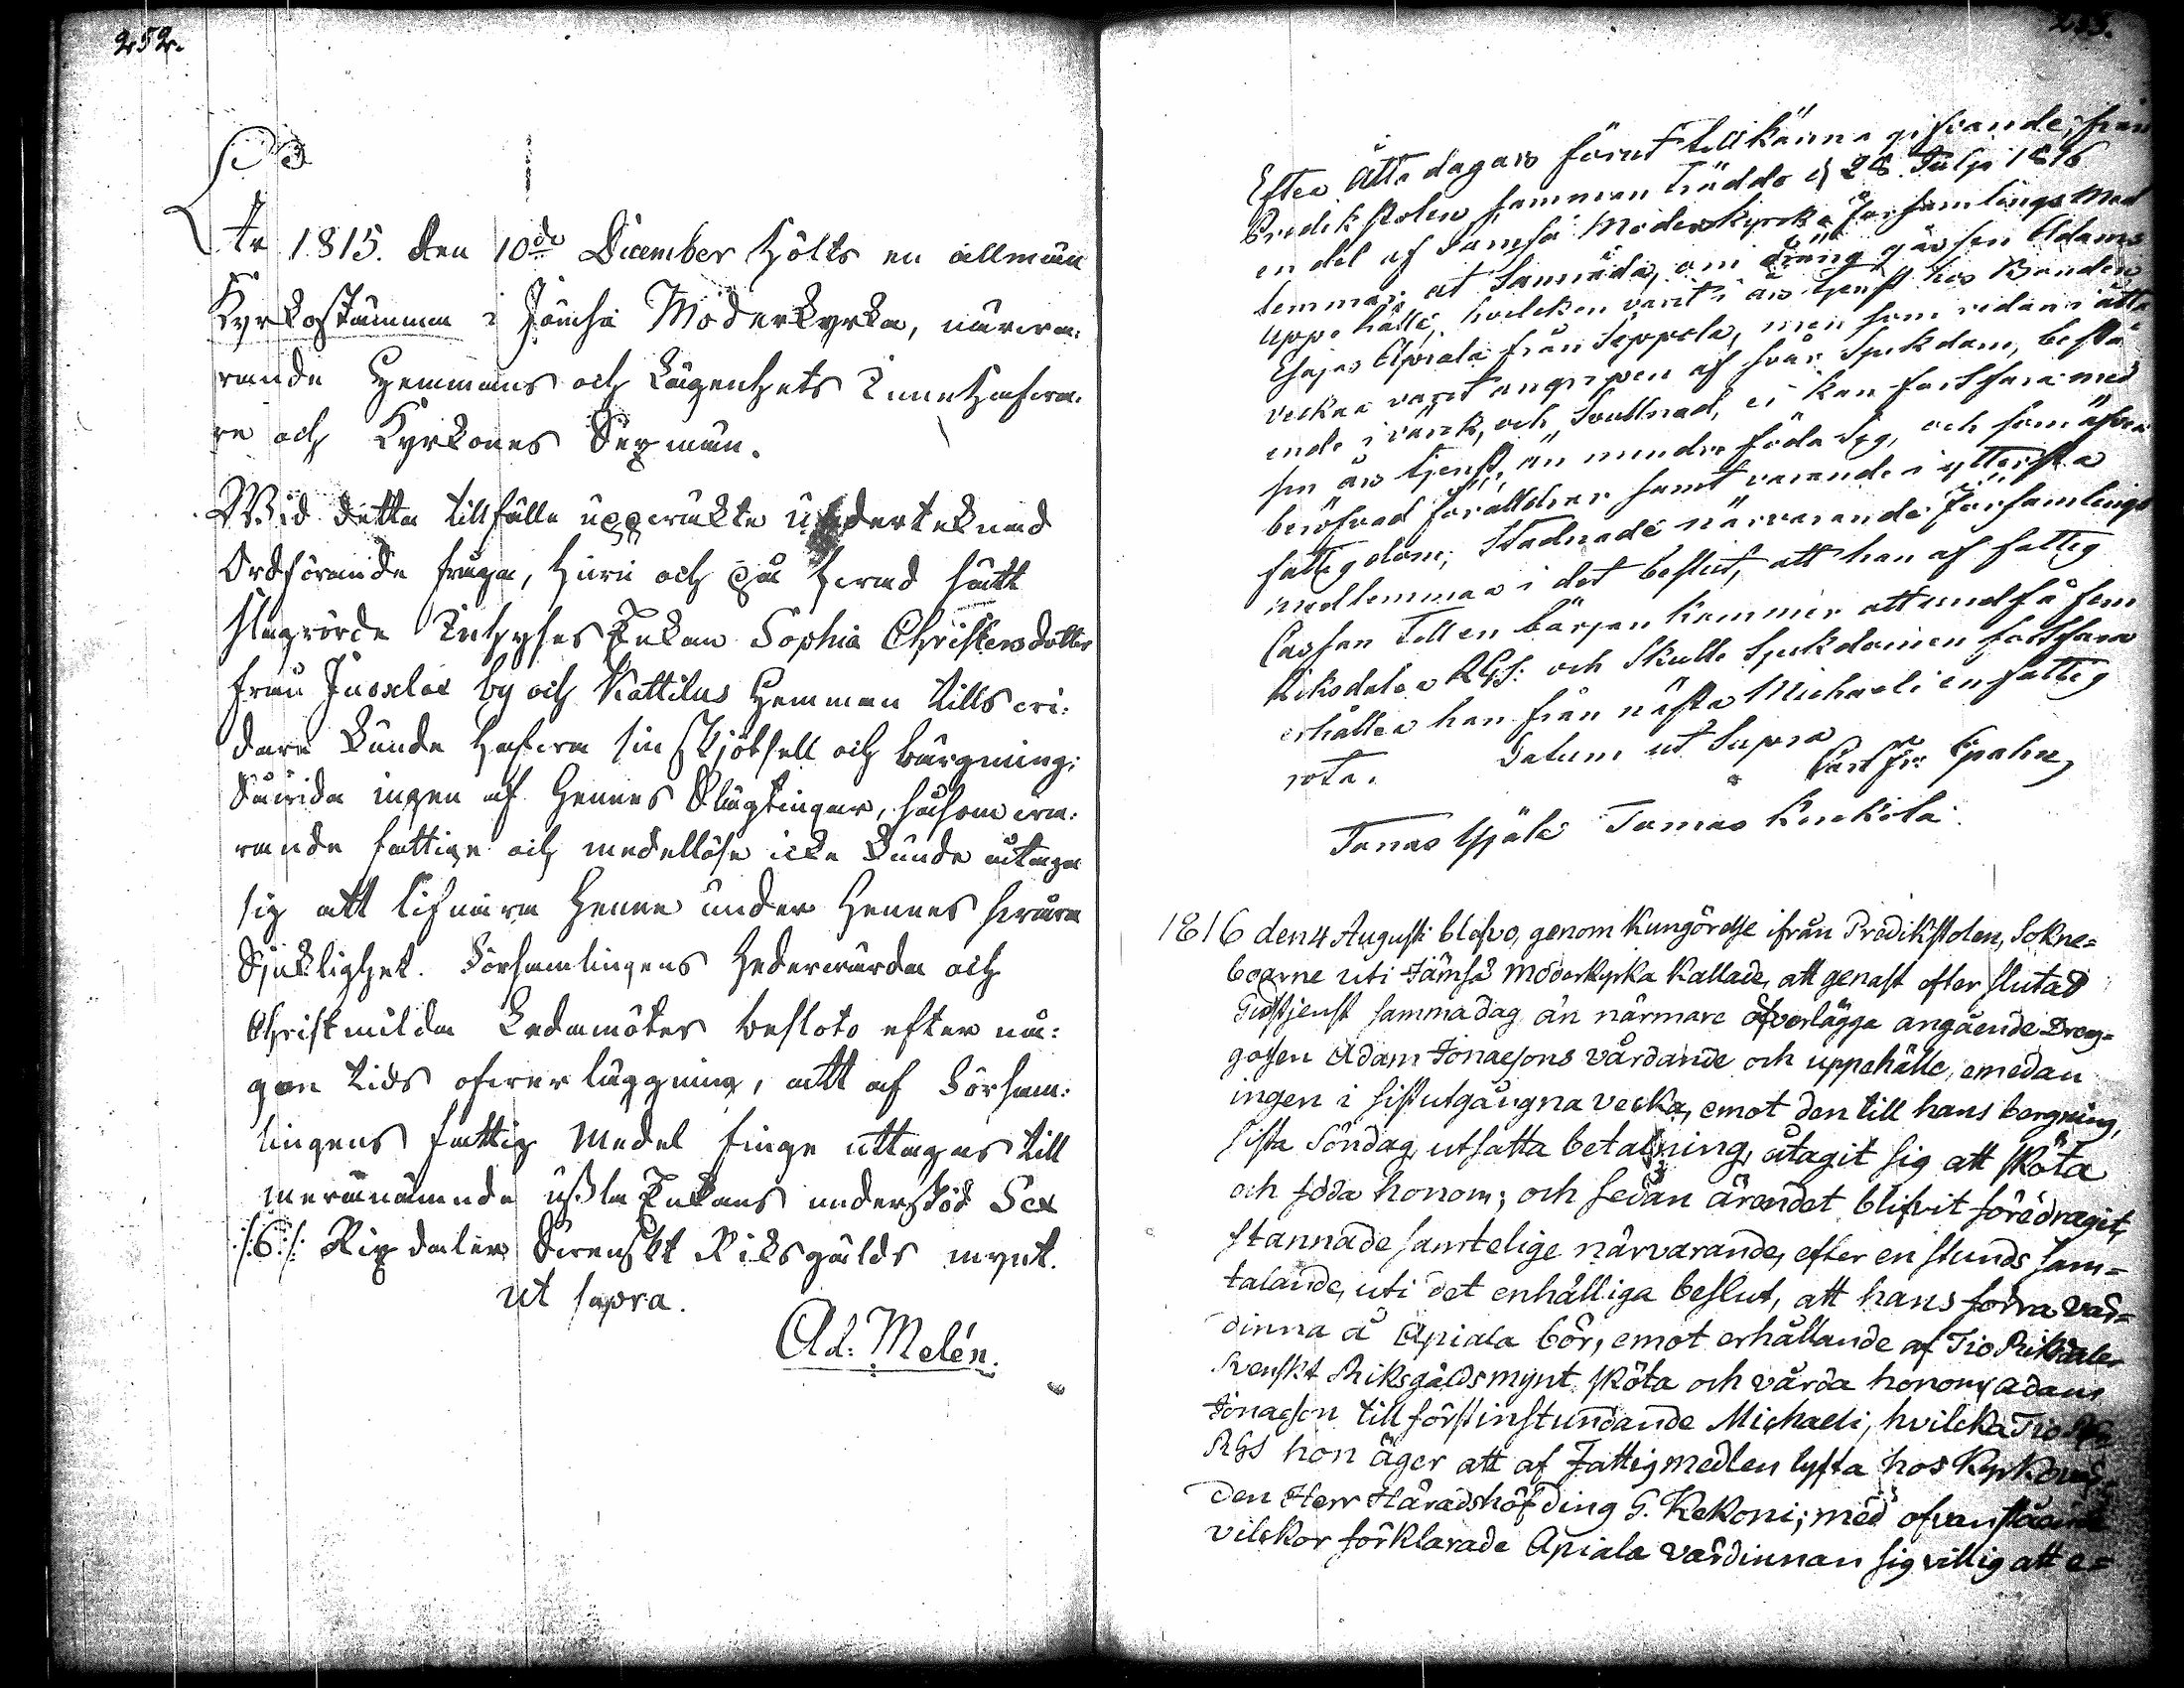 252.
År 1815. den 10de December hölts en allmän
Kyrkostämma i Jämsä Moderkyrka, närwa:
rande Hemmans och Lägenhets Innehafwa:
re och Kyrkones Sexmän.
Wid detta tillfälle uppwäkte underteknad
Ordförande fråga, huru och på hwad sätt
slagrörde Inhyses Enkan Sophia Christersdotter
från Juoxlax by och Kattilus Hemman tills wi:
dare kunde hafwa sin skjötsell och bärgning;
Såwida ingen af Hennes Slägtingar, såsom wa:
rande fattige och medellöse icke kunde åtaga
sig att lifnära Henne under Hennes swåra
Sjuklighet. Församlingens Hederwärda och
Christmilda Ledamöter besloto efter nå:
gon tids öfwerläggning, att af Försam:
lingens fattig Medel finge uttagas till
merännämnde usla Enkans understöd Sex
/:6:/ Rixdaler Swenskt Riksgälds mynt.
ut supra.
Ad: Melén.
253.
Efter åtta dagars förut tillkänna gifvande, från
Predikstolen, samman trädde d 28 Julji 1816
en del af Jämsä Moderkyrka församlings med
lemmar; at samråda, om dräng gåssen Adams
uppehälle, hvilcken varit i års tjenst hos Bonden
Esajas Apiala från Seppola, men som redan i åtta
veckor varit angripen af svår Sjukdom, bestå
ende i värck, och Svullnad, ei kan fortfara med
sin års tjenst, än mindre föda Sig, och som äfven
beröfvad föräldrar samt varande i yttersta
fattigdom; Stadnade närvarande Församlings
medlemmar i det beslut, att han af fattig
Cassan till en början kommer att undfå fem
Riksdaler RGS: och Skulle Sjukdomen fortfara
erhåller han från nästa Michaeli en fattig
rota. Datum ut Supra
Carl Fr: Spahn,
Tomas Ypälä Tomas Kuckola
1816 den 4 Augusti blefvo, genom Kungörelse ifrån Predikstolen, Sokne=
boerne uti Jämsä Moderkyrka kallade, att genast efter slutad
Gudstjenst samma dag än närmare öfverlägga angående Dreng=
gossen Adam Jonaesons vårdande och uppehälle, emedan
ingen i sistutgångna vecka, emot den till hans bergning,
sista Söndag utsatta betalning, åtagit sig att sköta
och föda honom; och sedan ärendet blifvit föredragit,
stannade samtelige närvarande, efter en stunds sam=
talande, uti det enhälliga beslut, att hans förra vär=
dinna å Apiala bör, emot erhållande af Tio Riksdaler
Svenskt Riksgäldsmynt, sköta och vårda honom, Adam
Jonaeson till förstinstundande Michaeli, hvilcka Tio Rd
RGS hon äger att af Fattigmedlen lyfta hos Kyrkovär=
den Herr Häradshöfding G. Kekoni; med ofvanstående
vilckor förklarade Apiala värdinnan sig villig att e=